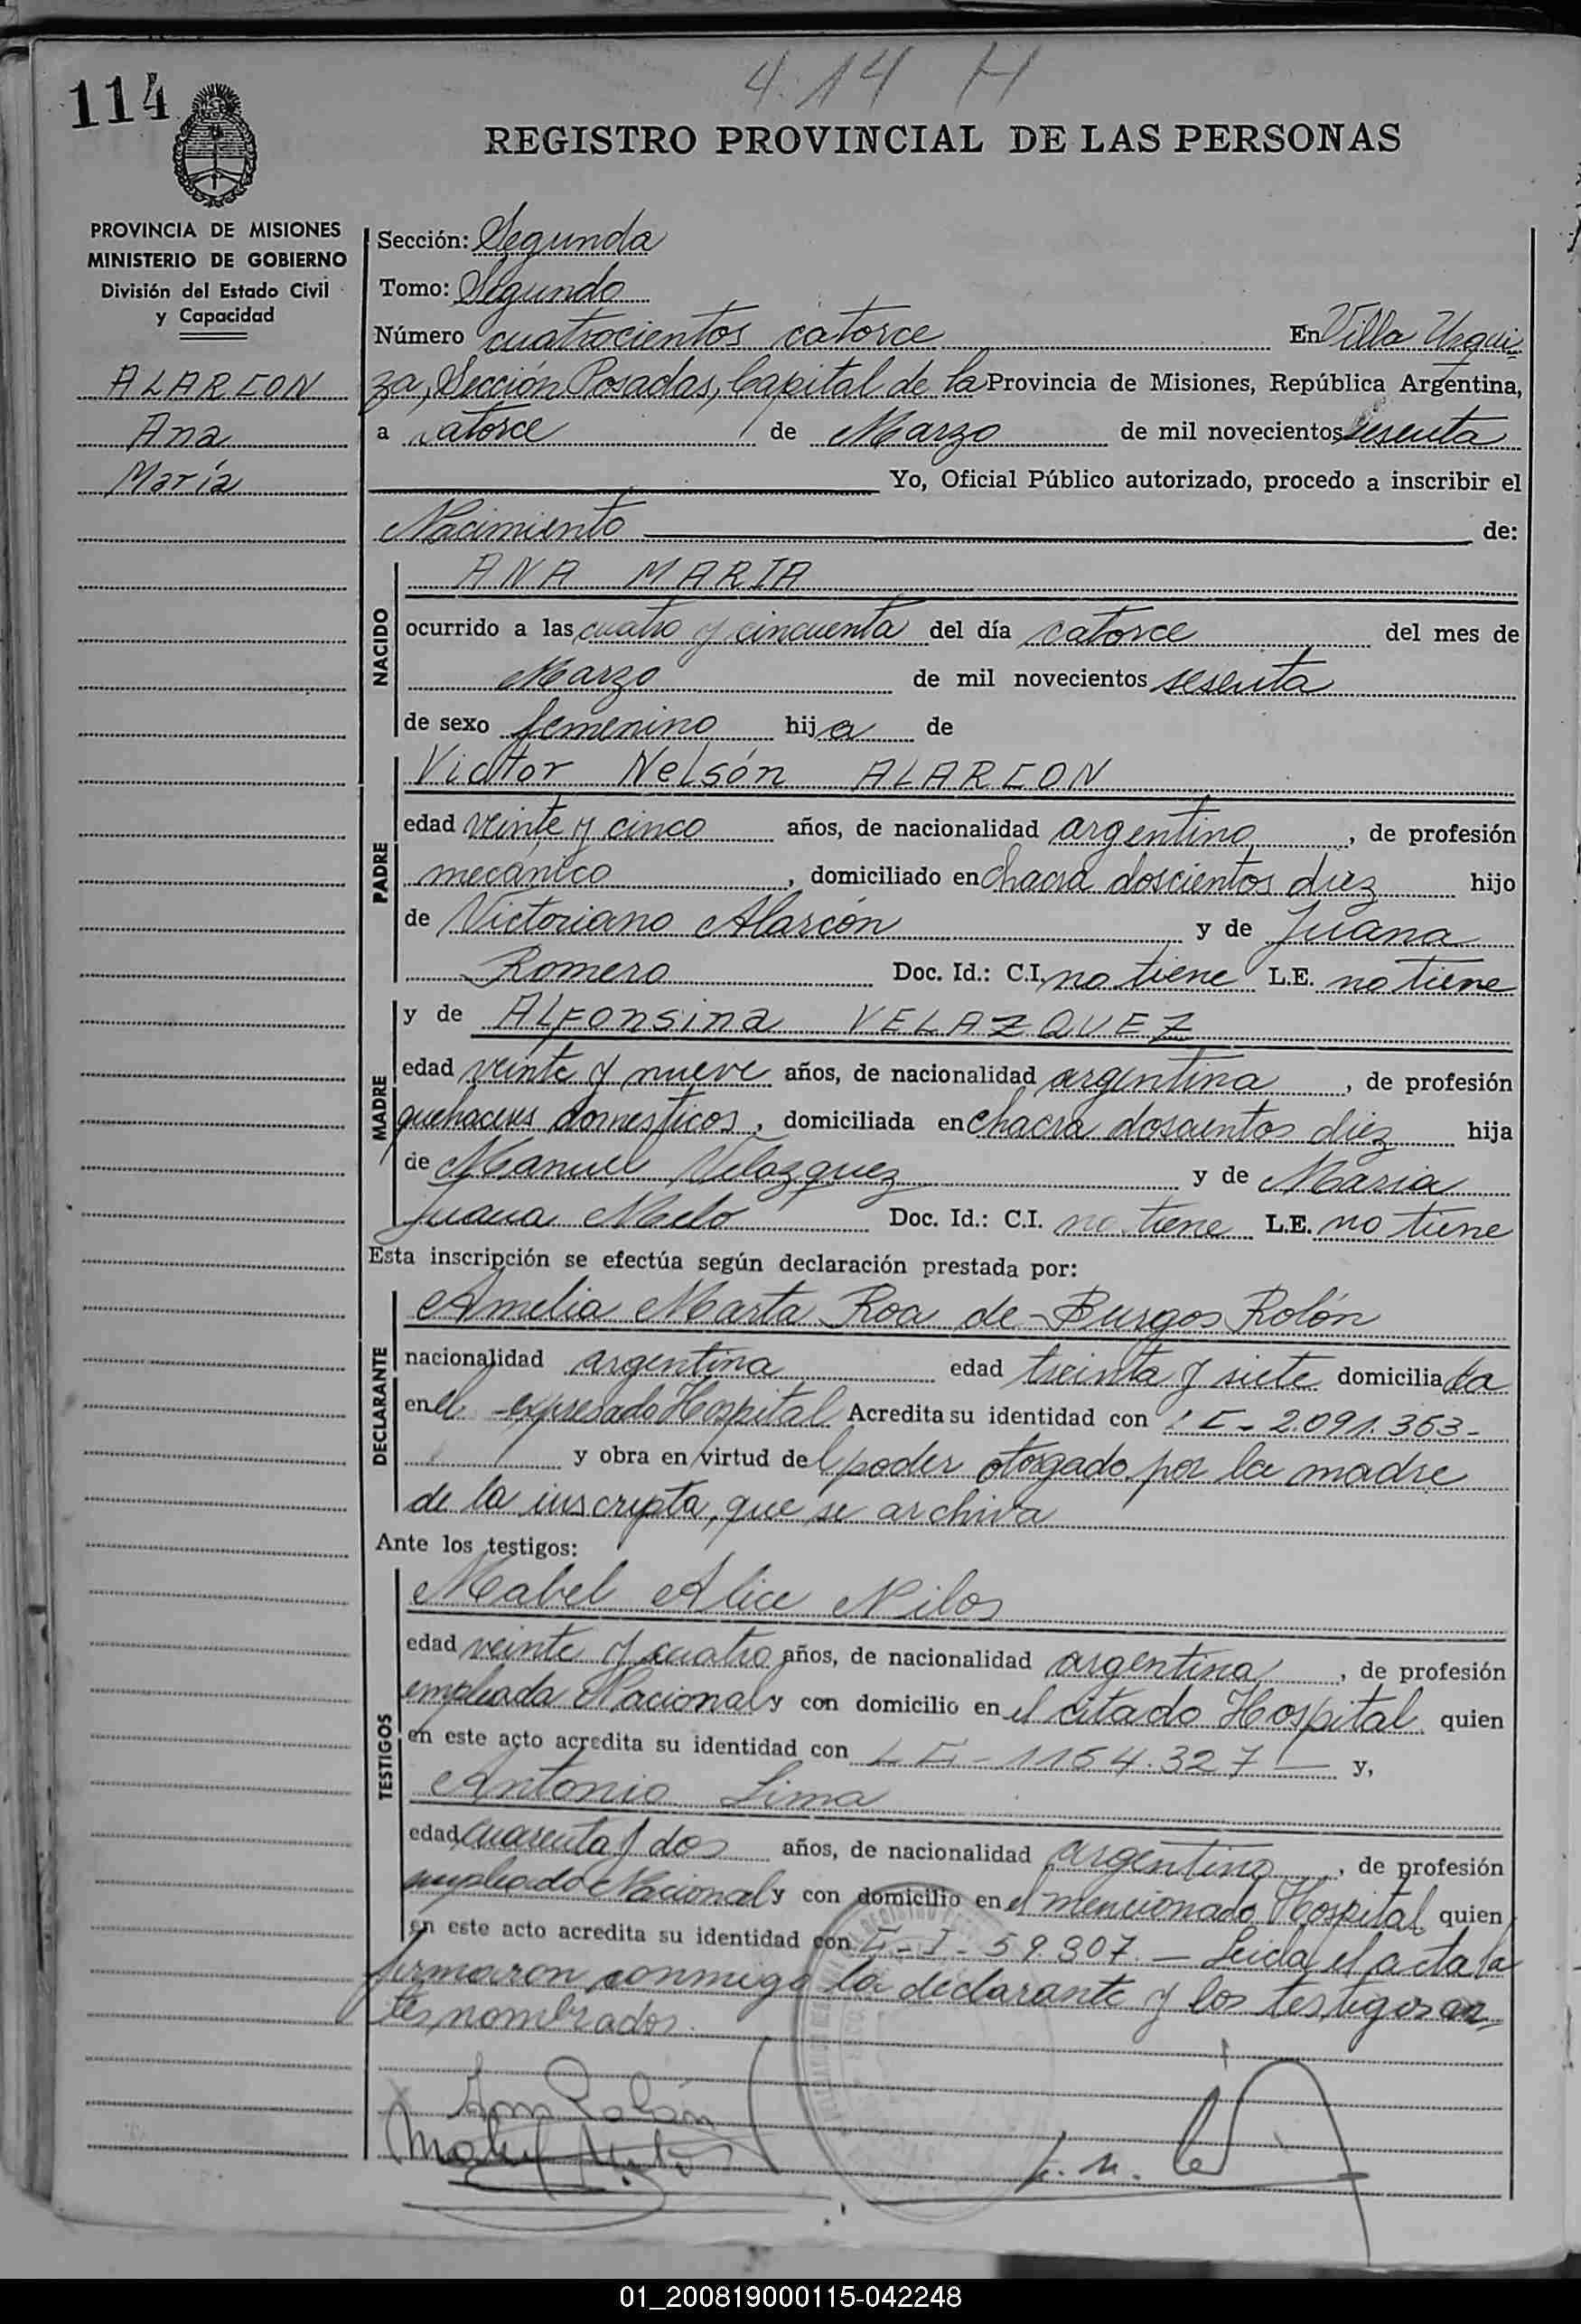 4.14 H
114
REGISTRO PROVINCIAL DE LAS PERSONAS
PROVINCIA DE MISIONES
MINISTERIO DE GOBIERNO
División del Estado Civil
y Capacidad
ALARCON
Ana
María
Sección: Segunda
Tomo: Segundo
Número cuatrocientos catorce En Villa Urqui
za, Sección Posadas, Capital de la Provincia de Misiones, República Argentina,
a catorce de Marzo de mil novecientos sesenta
Yo, Oficial Público autorizado, procedo a inscribir el
Nacimiento de:
NACIDO
ANA MARIA
ocurrido a las cuatro y cincuenta del día catorce del mes de
Marzo de mil novecientos sesenta
de sexo femenino hija de
PADRE
Victor Nelsón ALARCON
edad veinte y cinco años, de nacionalidad argentino, de profesión
mecánico, domiciliado en chacra doscientos diez hijo
de Victoriano Alarcón y de Juana
Romero Doc. Id.: C.I. no tiene L.E. no tiene
MADRE
y de ALFonsina VELAZQUEZ
edad veinte y nueve años, de nacionalidad argentina, de profesión
quehaceres domesticos, domiciliada en chacra doscientos diez hija
de Manuel Velazquez y de Maria
Juana Melo Doc. Id.: C.I. no tiene L.E. no tiene
Esta inscripción se efectúa según declaración prestada por:
DECLARANTE
Amelia Marta Roa de Burgos Rolón
nacionalidad argentina edad treinta y siete domiciliada
en el expresado Hospital Acredita su identidad con 2.091.363-
y obra en virtud del poder otorgado por la madre
de la inscripta, que se archiva
Ante los testigos:
TESTIGOS
Mabel Alice Nilos
edad veinte y cuatro años, de nacionalidad argentina, de profesión
empleada Nacional y con domicilio en el citado Hospital quien
en este acto acredita su identidad con 1154.327 y,
Antonio Lima
edad cuarenta y dos años, de nacionalidad argentino, de profesión
empleado Nacional y con domicilio en el mencionado Hospital quien
en este acto acredita su identidad con 59.307.- Leida el acta la
firmaron conmigo la declarante y los testigos an
tes nombrados.
01_200819000115-042248